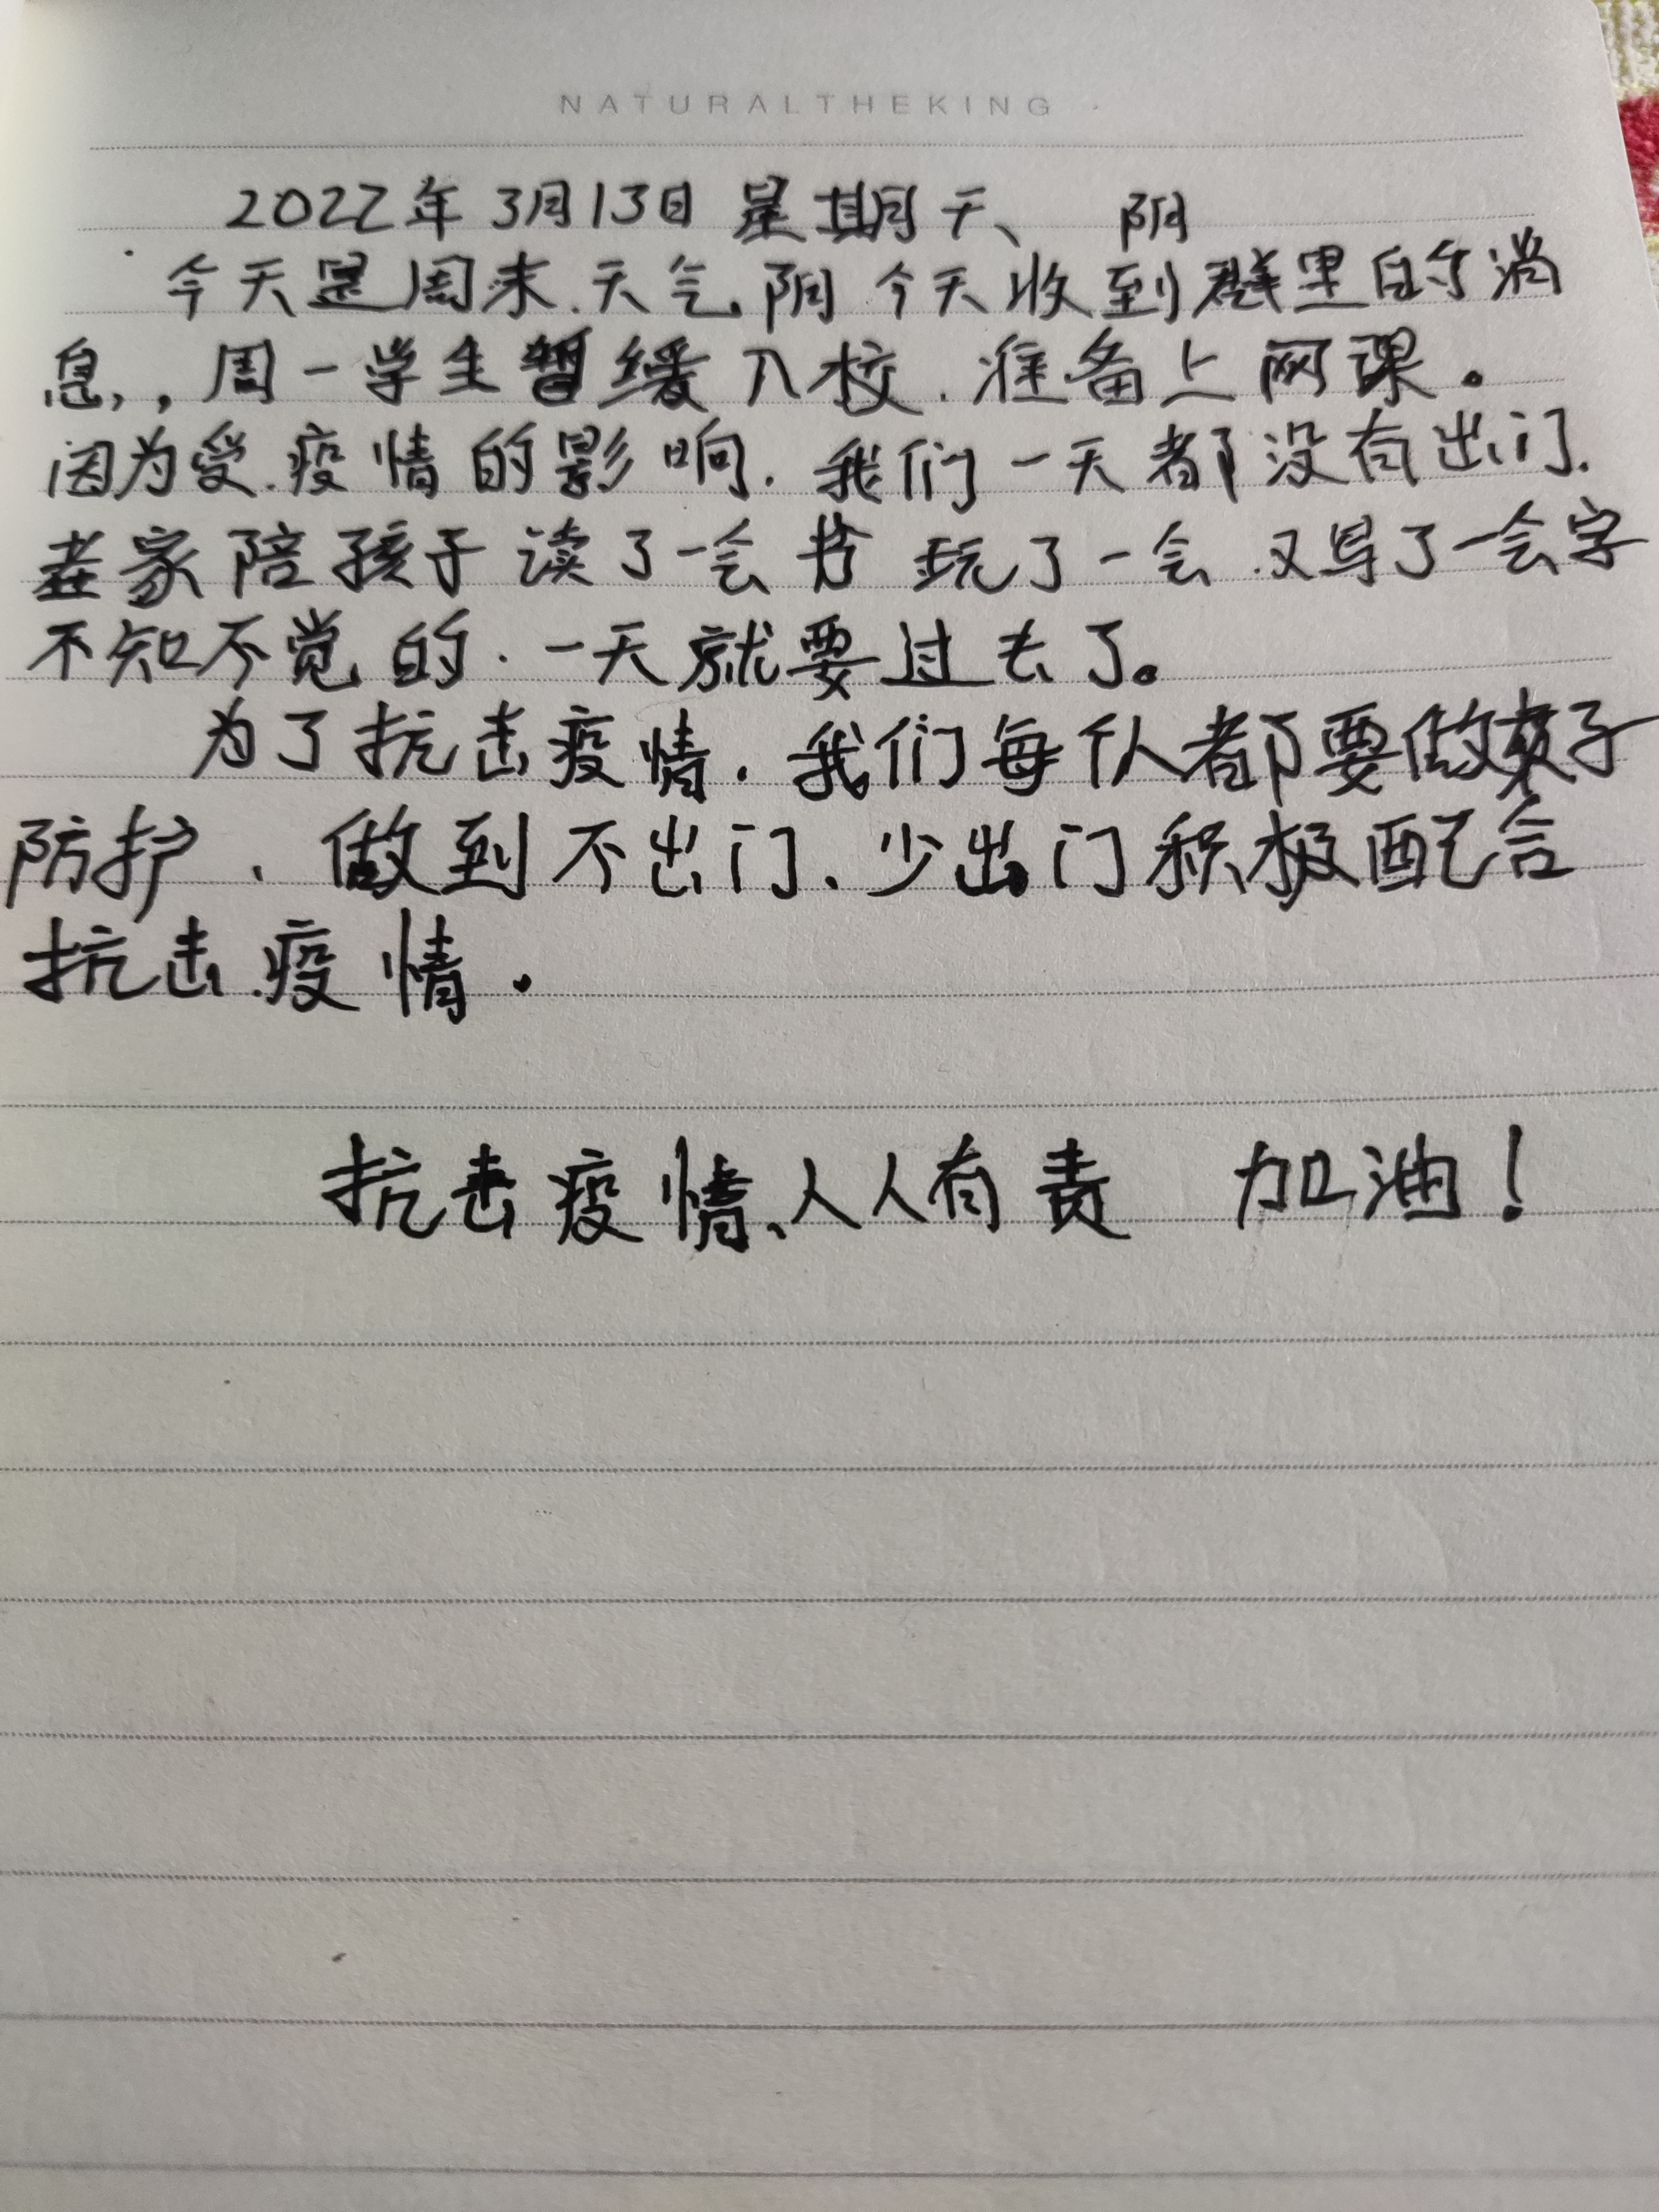 NATURALTHEKING
2022年3月13日 星期天、 阴
今天是周末.天气阴 今天收到群里的消
息,,周一学生暂缓入校.准备上网课。
因为受.疫情的影响.我们一天都没有出门.
在家陪孩子读了一会书 玩了一会.又写了一会字
不知不觉的.一天就要过去了。
为了抗击疫情.我们每个人都要做好
防护、做到不出门、少出门积极配合
抗击疫情.
抗击疫情、人人有责 加油!